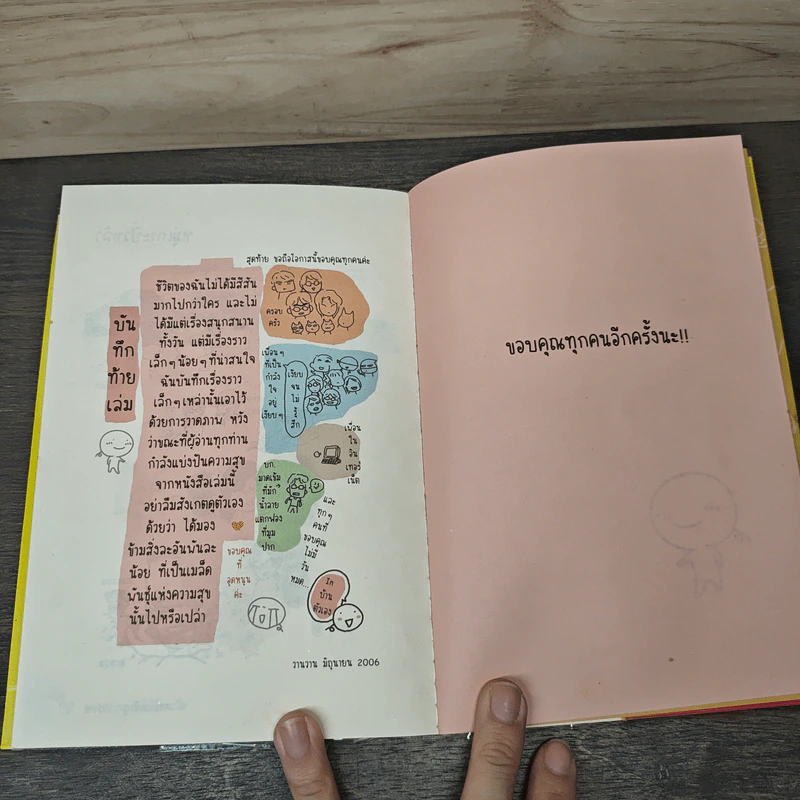 บัน
ทึก
ท้าย
เล่ม
ชีวิตของฉันไม่ได้มีสีสัน
มากไปกว่าใคร และไม่
ได้มีแต่เรื่องสนุกสนาน
ทั้งวัน แต่มีเรื่องราว
เล็กๆ น้อยๆ ที่น่าสนใจ
ฉันบันทึกเรื่องราว
เล็กๆ เหล่านั้นเอาไว้
ด้วยการวาดภาพ หวัง
ว่าขณะที่ผู้อ่านทุกท่าน
กำลังแบ่งปันความสุข
จากหนังสือเล่มนี้
อย่าลืมสังเกตดูตัวเอง
ด้วยว่า ได้มอง
ข้ามสิ่งละอันพันละ
น้อย ที่เป็นเมล็ด
พันธุ์แห่งความสุข
นั้นไปหรือเปล่า
ขอบคุณ
ที่
อุดหนุน
ค่ะ
สุดท้าย ขอถือโอกาสนี้ขอบคุณทุกคนค่ะ
ครอบ
ครัว
เพื่อนๆ
ที่เป็น
กำลัง
ใจ
อยู่
เงียบๆ
เงียบ
จน
ไม่
รู้
สึก
เพื่อน
ใน
อิน
เทอร์
เน็ต
บก.
มาดเข้ม
ที่มัก
น้ำลาย
แตกฟอง
ที่มุม
ปาก
และ
ทุกๆ
คนที่
ขอบคุณ
ไม่มี
วัน
หมด...
บ้าน
ตัวเอง
วานวาน มิถุนายน 2006
ขอบคุณทุกคนอีกครั้งนะ!!